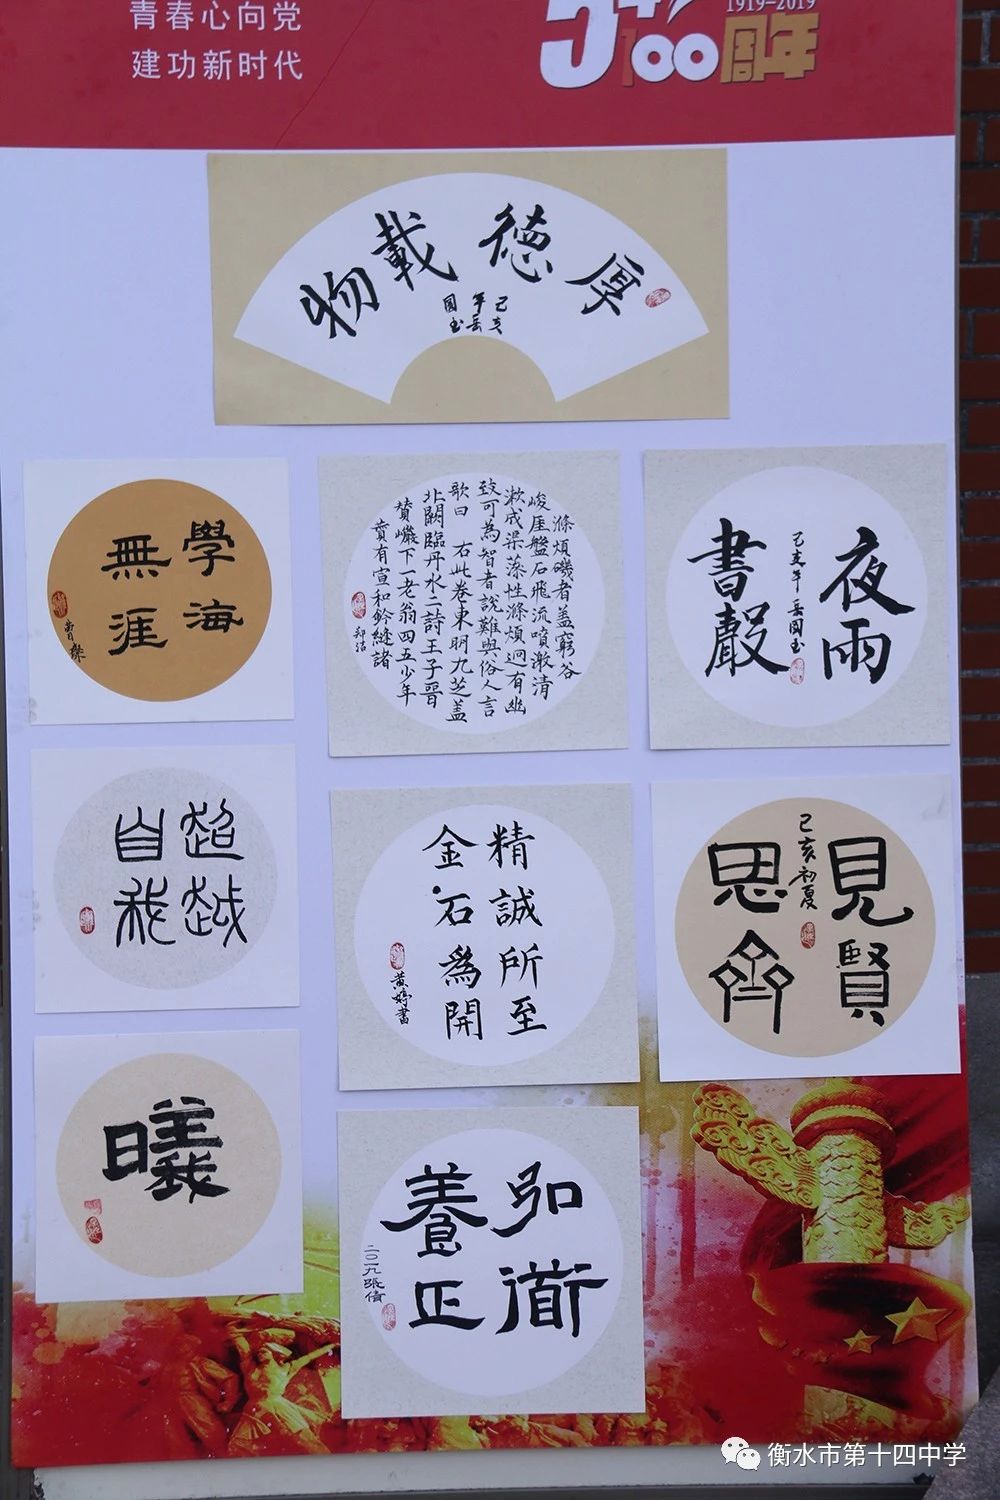 青春心向党
建功新时代
1919-2019
54
100周年
厚德載物
己亥
年岳
國玉
學海
無涯
滌煩磯者盖窮谷
峻厓盤石飛流噴激清
漱成渠藻性滌煩迥有幽
致可為智者說難與俗人言
歌曰 右此卷東明九芝盖
北闕臨丹水二詩王子晋
賛巖下一老翁四五少年
賛有宣和鈐縫諸
夜雨
己亥年岳國玉
書聲
超越
自我
精誠所至
金石為開
黄婷書
見賢
己亥初夏
思齊
曦
弘道
養正
二〇一九張倩
衡水市第十四中学